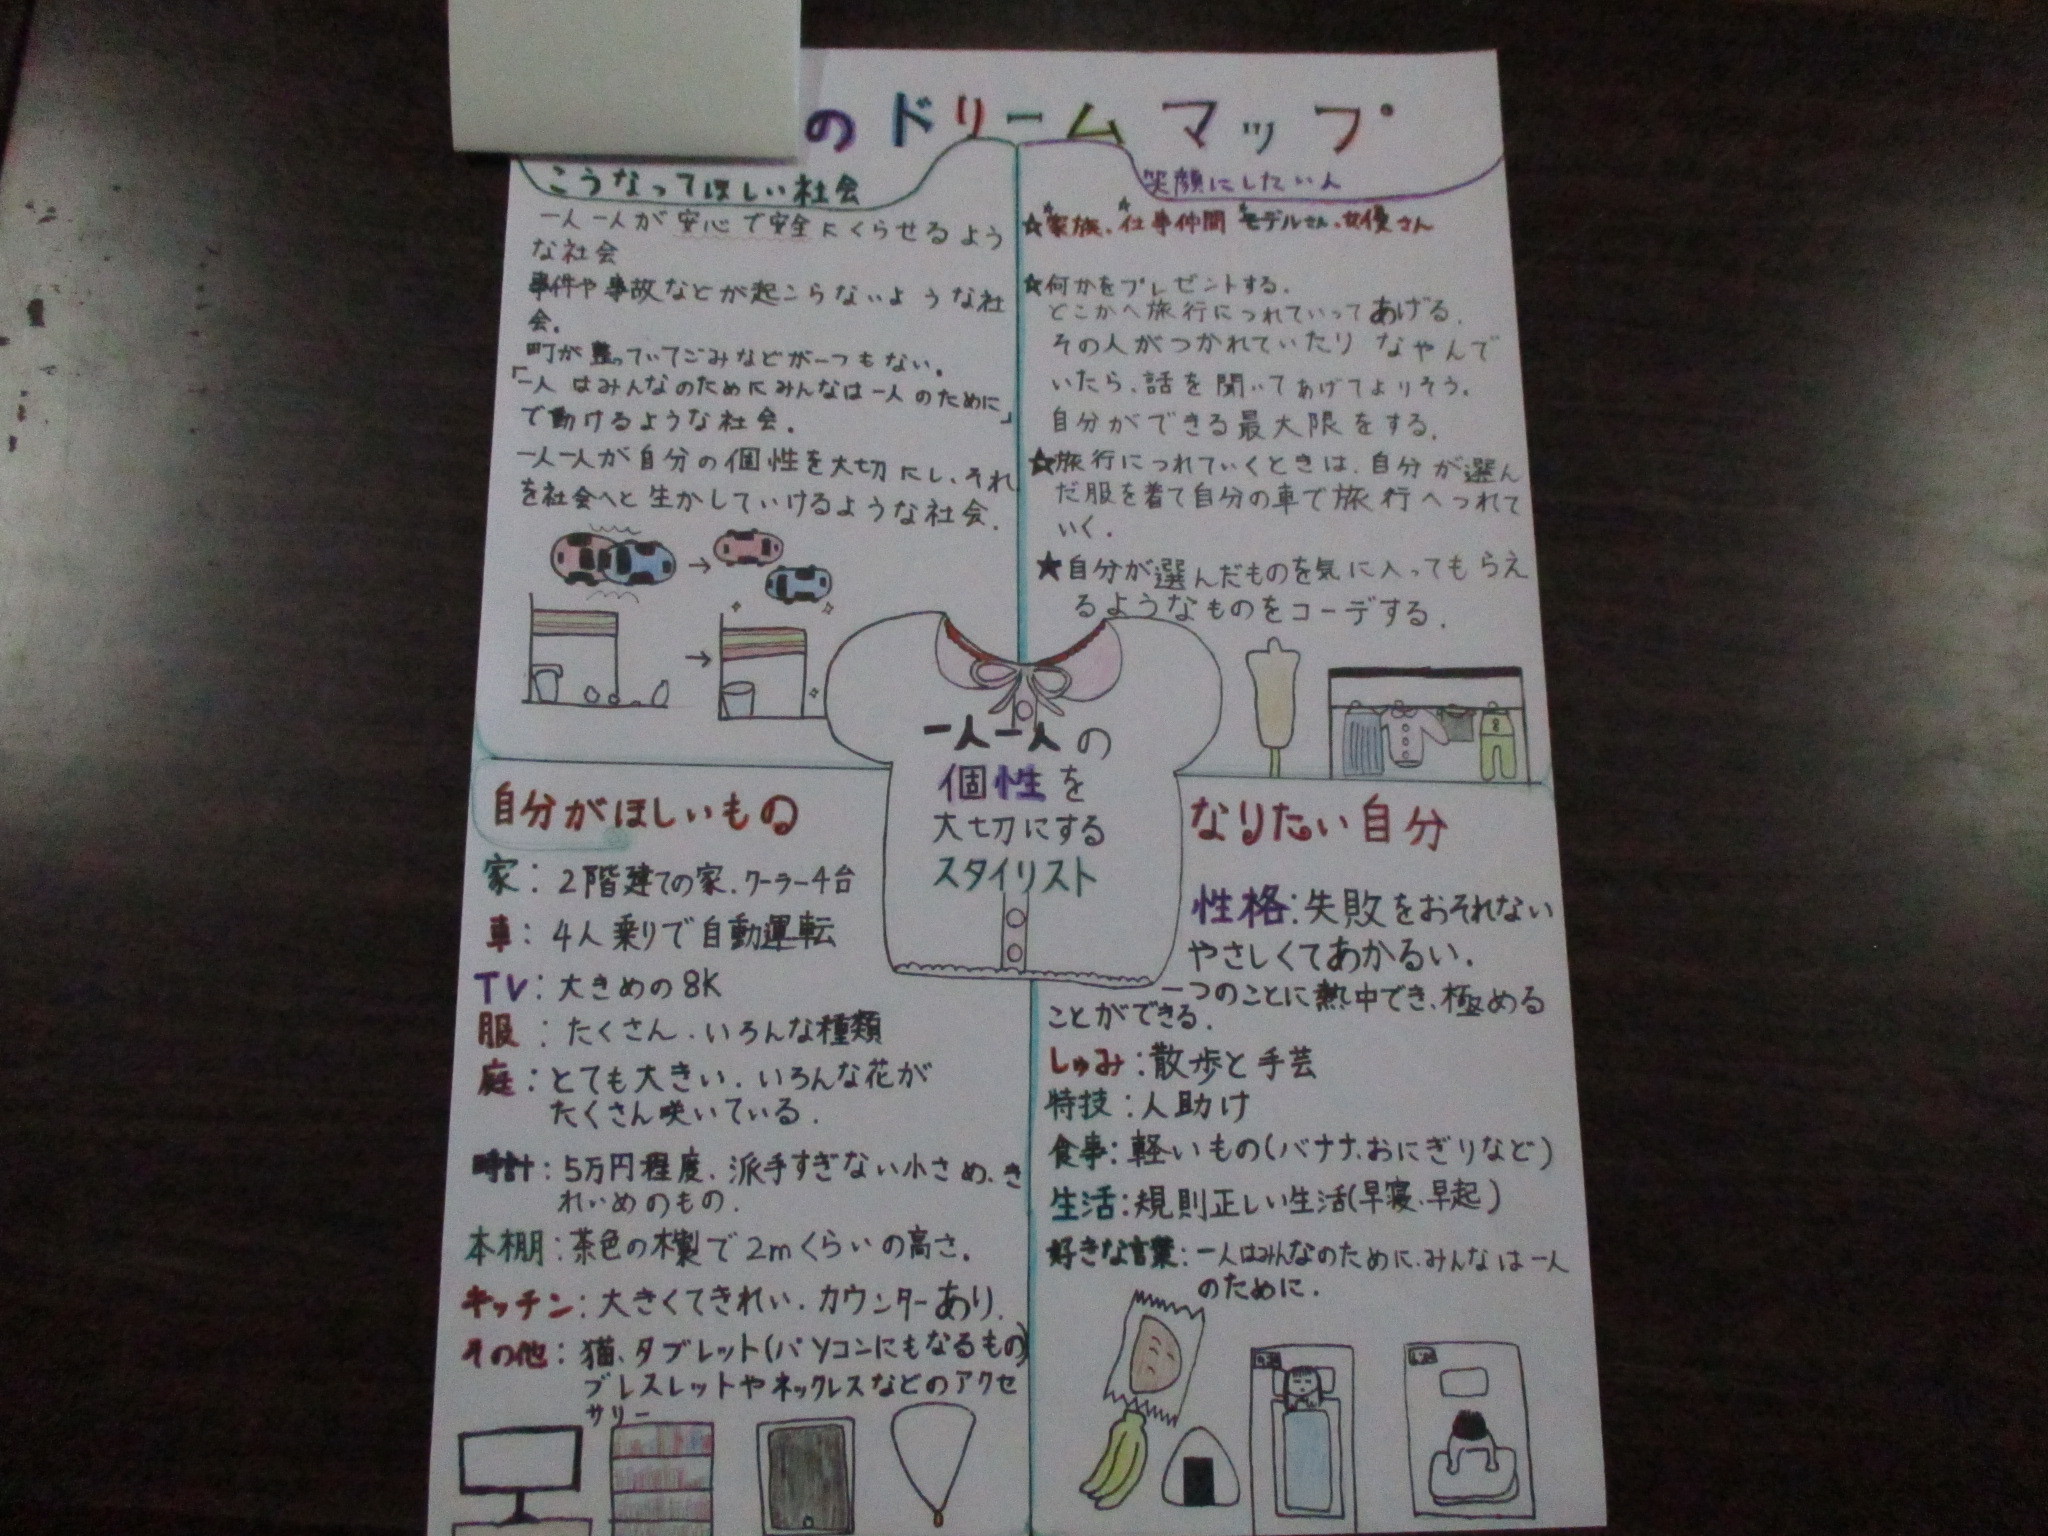 のドリームマップ
こうなってほしい社会
一人一人が安心で安全にくらせるよう
な社会
事件や事故などが起こらないような社
会.
町が整っていてごみなどが一つもない.
「一人はみんなのためにみんなは一人のために」
で動けるような社会.
一人一人が自分の個性を大切にし、それ
を社会へと生かしていけるような社会.
笑顔にしたい人
☆家族、仕事仲間 モデルさん、女優さん
☆何かをプレゼントする.
どこかへ旅行につれていってあげる.
その人がつかれていたり なやんで
いたら、話を聞いてあげてよりそう.
自分ができる最大限をする.
☆旅行につれていくときは、自分が選ん
だ服を着て自分の車で旅行へつれて
いく.
★自分が選んだものを気に入ってもらえ
るようなものをコーデする.
一人一人の
個性を
大切にする
スタイリスト
自分がほしいもの
家:2階建ての家、クーラー4台
車:4人乗りで自動運転
TV:大きめの8K
服:たくさん、いろんな種類
庭:とても大きい、いろんな花が
たくさん咲いている.
時計:5万円程度、派手すぎない小さめ、き
れいめのもの.
本棚:茶色の木製で2mくらいの高さ.
キッチン:大きくてきれい、カウンターあり.
その他:猫、タブレット(パソコンにもなるもの)
ブレスレットやネックレスなどのアクセ
サリー
なりたい自分
性格:失敗をおそれない
やさしくてあかるい.
一つのことに熱中でき、極める
ことができる.
しゅみ:散歩と手芸
特技:人助け
食事:軽いもの(バナナ、おにぎりなど)
生活:規則正しい生活(早寝、早起)
好きな言葉:一人はみんなのために、みんなは一人
のために.